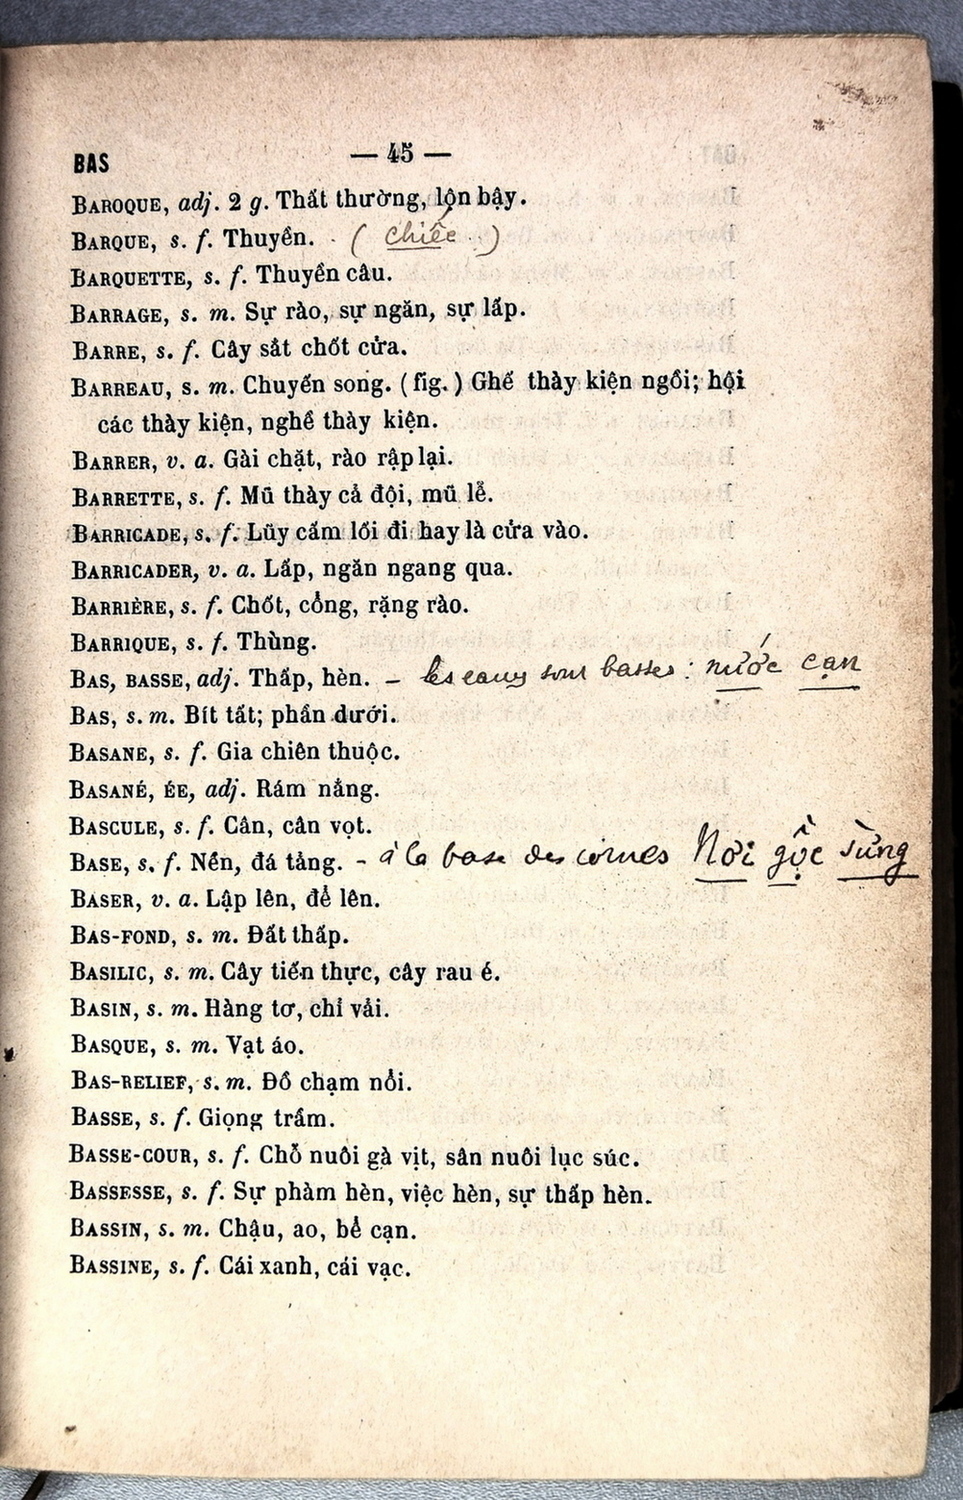 BAS — 45 —
BAROQUE, adj. 2 g. Thất thường, lộn bậy.
BARQUE, s. f. Thuyền. (chiếc)
BARQUETTE, s. f. Thuyền câu.
BARRAGE, s. m. Sự rào, sự ngăn, sự lấp.
BARRE, s. f. Cây sắt chốt cửa.
BARREAU, s. m. Chuyến song. (fig.) Ghế thày kiện ngồi; hội
các thày kiện, nghề thày kiện.
BARRER, v. a. Gài chặt, rào rập lại.
BARRETTE, s. f. Mũ thày cả đội, mũ lễ.
BARRICADE, s. f. Lũy cấm lối đi hay là cửa vào.
BARRICADER, v. a. Lấp, ngăn ngang qua.
BARRIÈRE, s. f. Chốt, cổng, rặng rào.
BARRIQUE, s. f. Thùng.
BAS, BASSE, adj. Thấp, hèn. – les eaux sont basses : nước cạn
BAS, s. m. Bít tất; phần dưới.
BASANE, s. f. Gia chiên thuộc.
BASANÉ, ÉE, adj. Rám nắng.
BASCULE, s. f. Cân, cân vọt.
BASE, s. f. Nền, đá tảng. – à la base des cornes Nơi gộc sừng
BASER, v. a. Lập lên, để lên.
BAS-FOND, s. m. Đất thấp.
BASILIC, s. m. Cây tiến thực, cây rau é.
BASIN, s. m. Hàng tơ, chỉ vải.
BASQUE, s. m. Vạt áo.
BAS-RELIEF, s. m. Đồ chạm nổi.
BASSE, s. f. Giọng trầm.
BASSE-COUR, s. f. Chỗ nuôi gà vịt, sân nuôi lục súc.
BASSESSE, s. f. Sự phàm hèn, việc hèn, sự thấp hèn.
BASSIN, s. m. Chậu, ao, bể cạn.
BASSINE, s. f. Cái xanh, cái vạc.